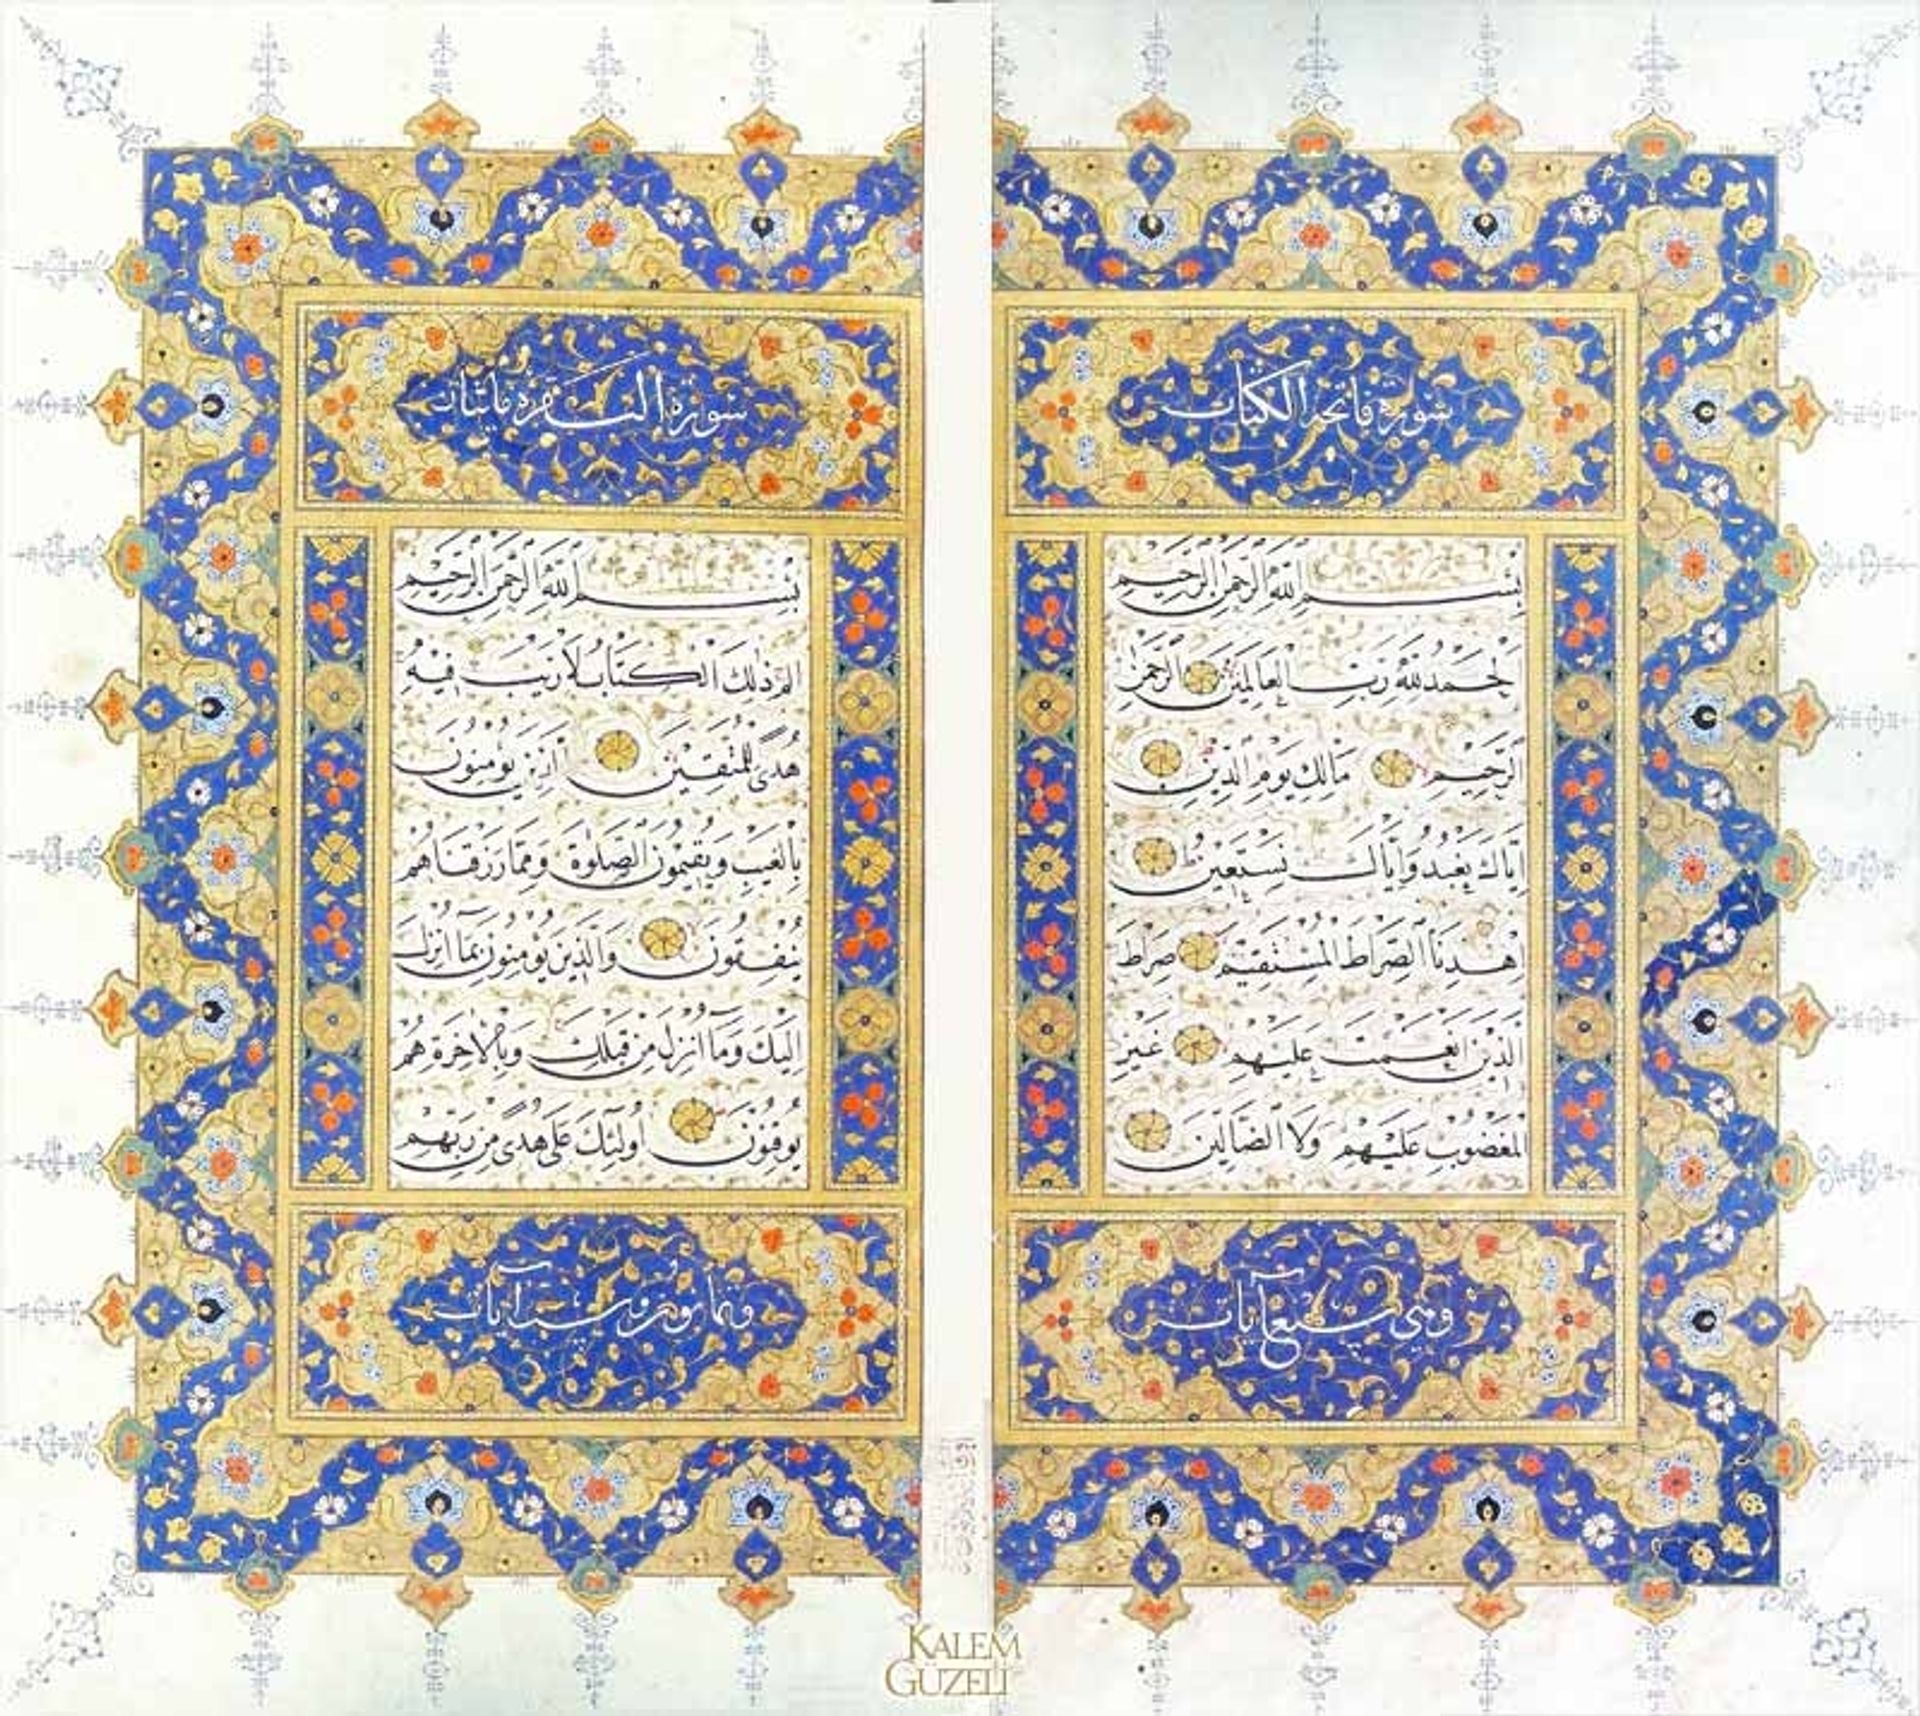 سورة فاتحة الكتاب
بسم الله الرحمن الرحيم
الحمد لله رب العالمين الرحمن
الرحيم مالك يوم الدين
اياك نعبد واياك نستعين
اهدنا الصراط المستقيم صراط
الذين انعمت عليهم غير
المغضوب عليهم ولا الضالين
وهي سبع آيات
سورة البقرة مائتان
بسم الله الرحمن الرحيم
الم ذلك الكتاب لا ريب فيه
هدى للمتقين الذين يؤمنون
بالغيب ويقيمون الصلوة ومما رزقناهم
ينفقون والذين يؤمنون بما انزل
اليك وما انزل من قبلك وبالاخرة هم
يوقنون اولئك على هدى من ربهم
وثمانون وست آيات
KALEM
GÜZELİ